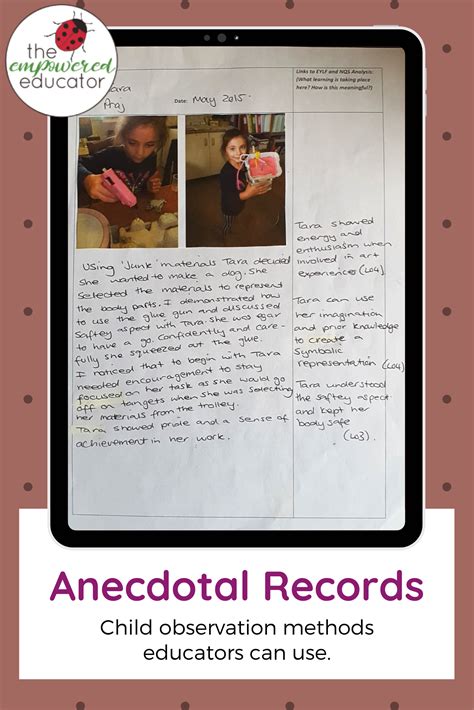 the
empowered
educator
Tara
Date: May 2015
Links to EYLF and NQS Analysis:
(What learning is taking place
here? How is this meaningful?)
Using 'Junk' materials Tara decided
she wanted to make a dog. She
selected the materials to represent
the body parts. I demonstrated how
to use the glue gun and discussed
saftey aspect with Tara. She was
to have a go. Confidently and care-
fully she squeezed out the glue.
I noticed that to begin with Tara
needed encouragement to stay
focused on her task as she would go
off on tangets when she was selecting
her materials from the trolley.
Tara showed pride and a sense of
achievement in her work.
Tara showed
energy and
enthusiasm when
involved in art
experiences (LO4)
Tara can use
her imagination
and prior knowledge
to create a
Symbolic
representation (LO4)
Tara understood
the saftey aspect
and kept her
body safe
(LO3).
Anecdotal Records
Child observation methods
educators can use.